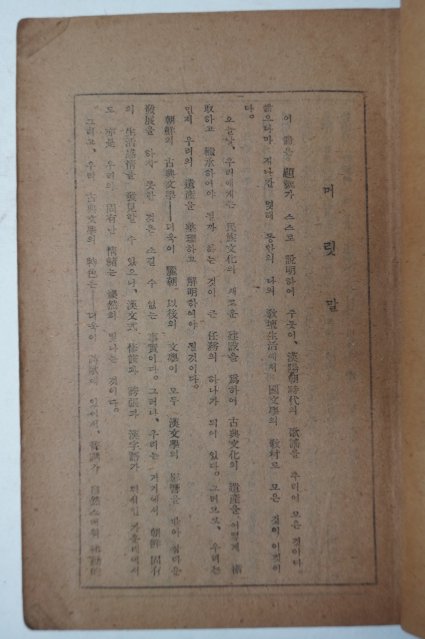 머릿말
이 책은 題號가 스스로 說明하여 주듯이, 漢陽朝時代의 歌謠를 추리어 모은 것이다.
 지나간 몇해 동안의 나의 敎壇生活에서 國文學의 敎材로 모은 것이 이것이
다.
오늘날, 우리에게는 民族文化의 새로운 建設을 爲하여 古典文化의 遺産을 어떻게 攝
取하고 繼承하여야 될까 하는 것이 큰 任務의 하나가 되어 있다. 그러므로, 우리는
먼저 우리의 遺産을 整理하고 解明하여야 될것이다.
朝鮮의 古典文學――더욱이 麗朝 以後의 文學이 모두 漢文學의 影響을 받아
發展을 하지 못한 것은 숨길 수 없는 事實이다. 그러나, 우리는 거기에서 朝鮮 固有
의 生活感情을 發見할 수 있으니, 漢文式 修辭와 誇張과 漢字語가 가운데에서
도 亦是 우리의 固有한 情緖는 빛나는 것이다.
그리고, 우리 古典文學의 特色은――더욱이 詩歌에 있어서, 音調가 自然스러워